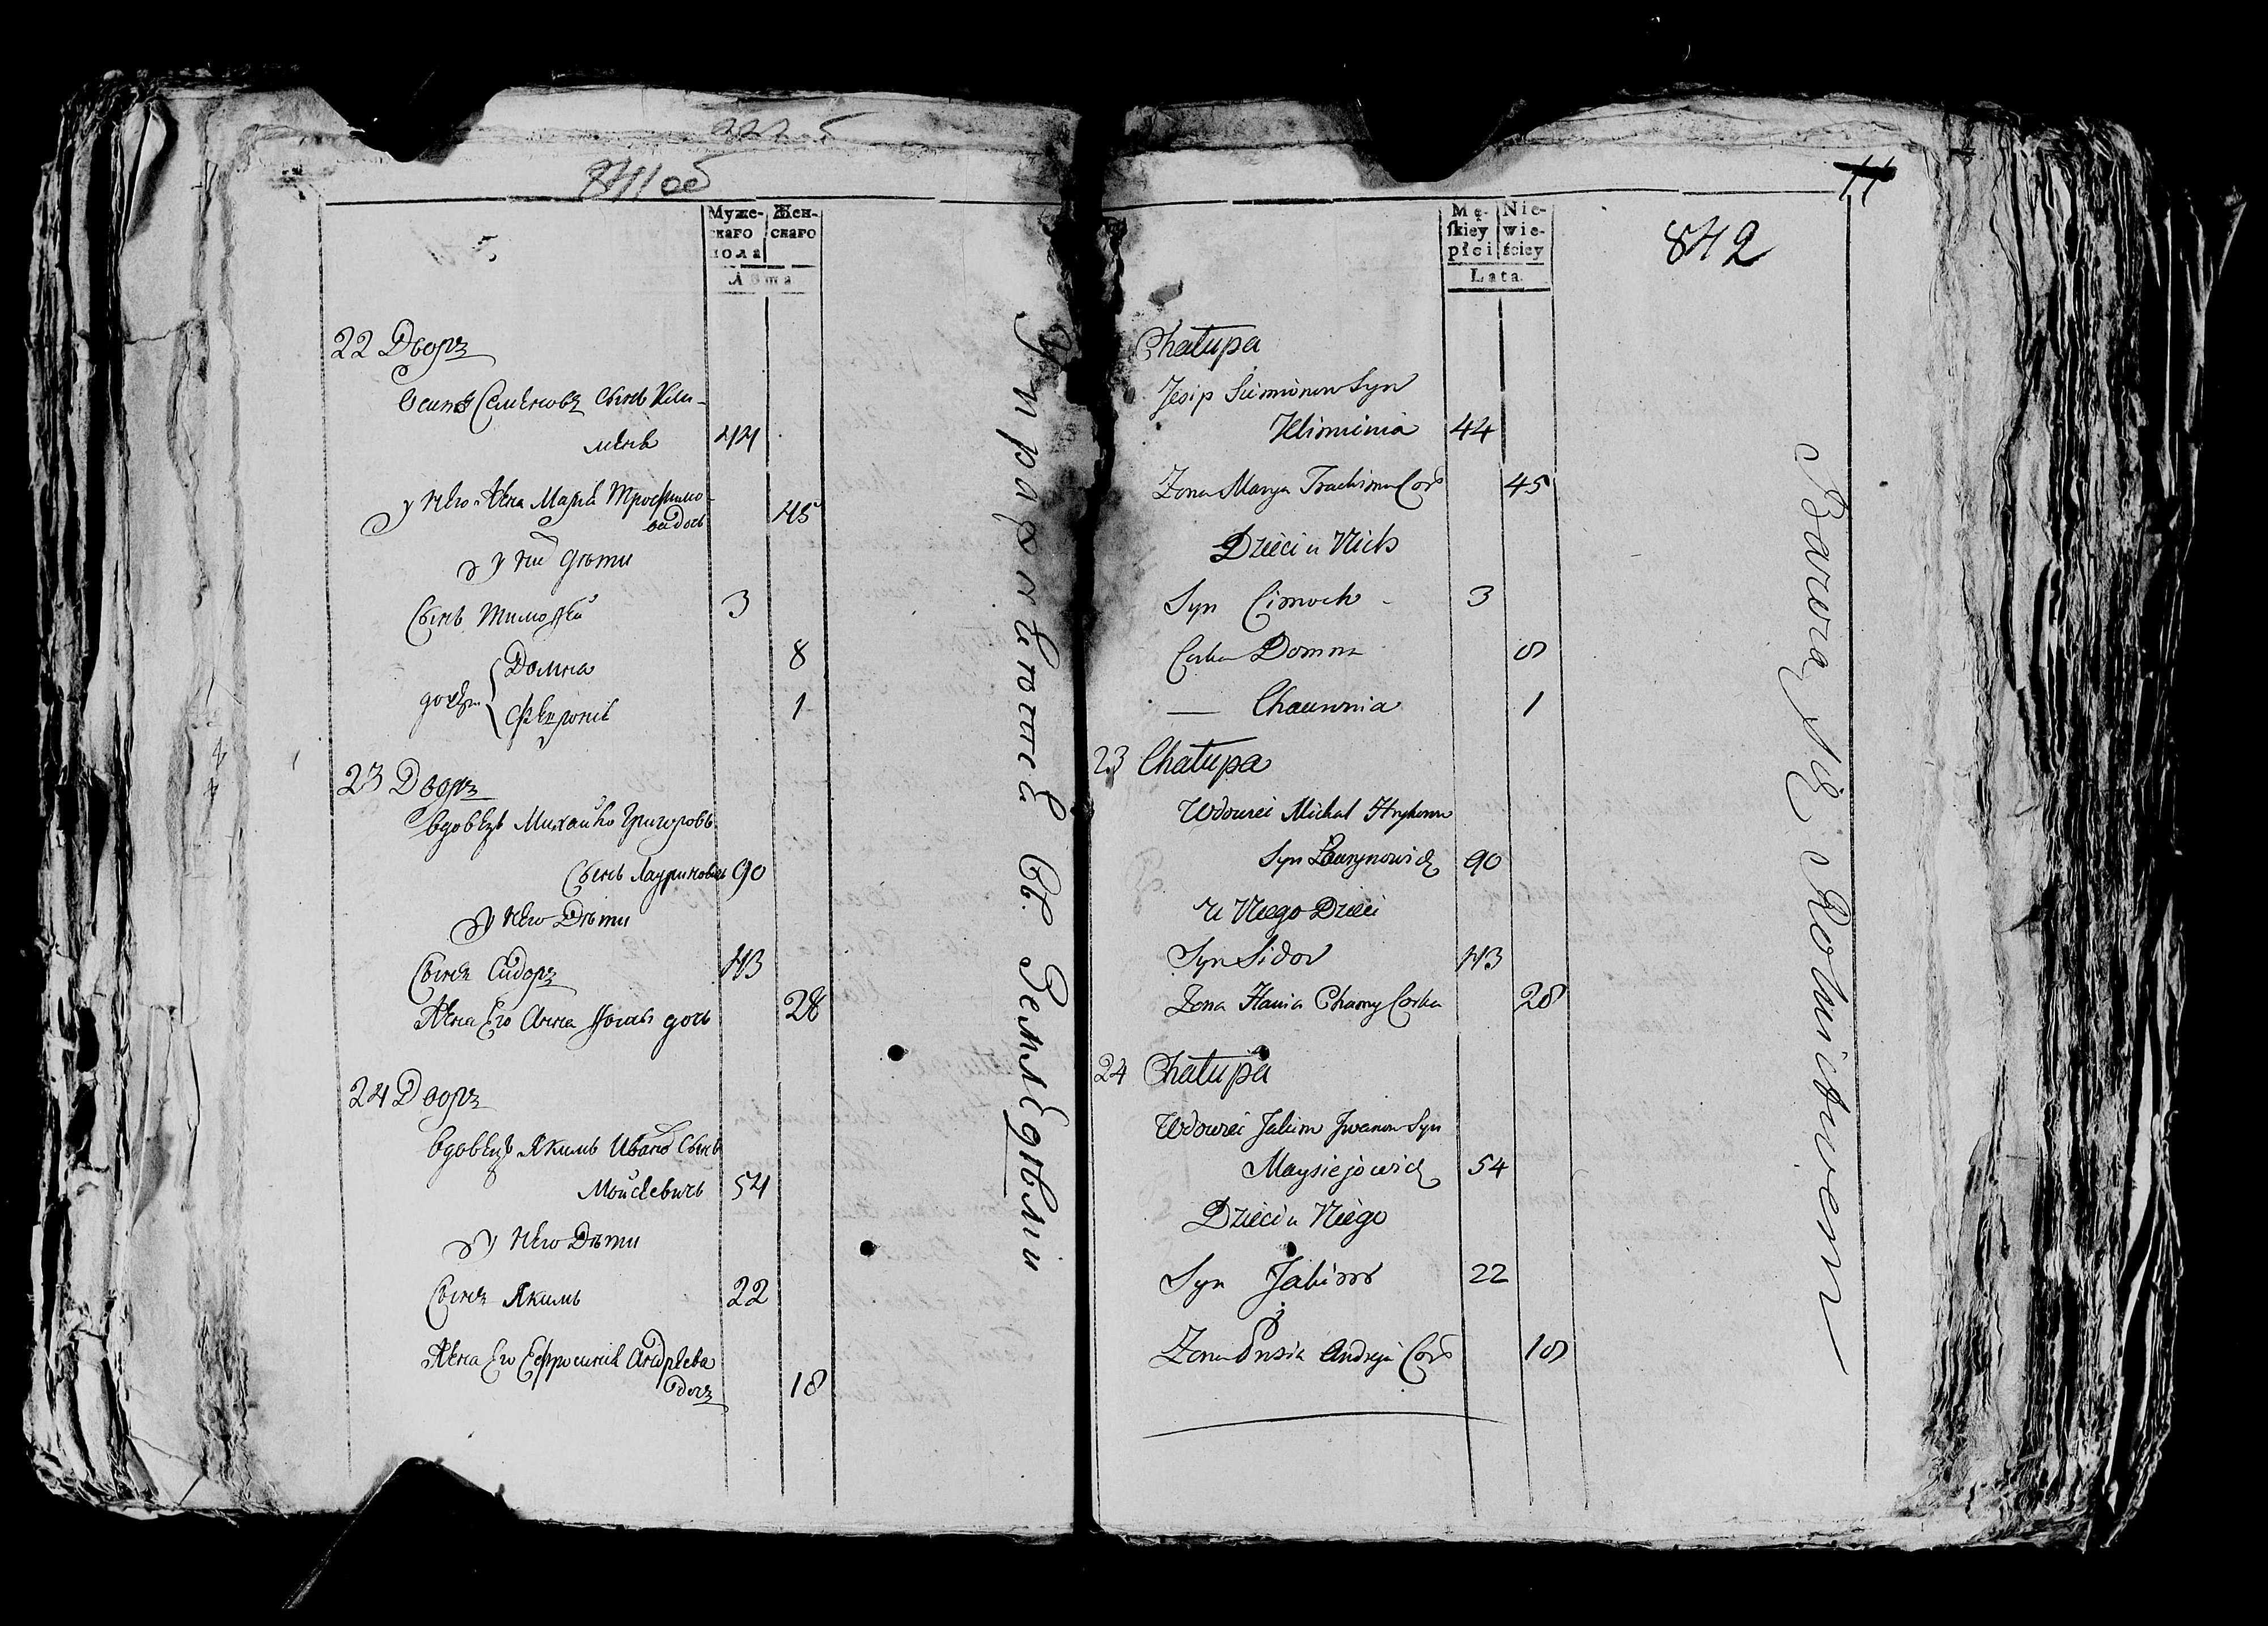 841 об
Муже-
скаго
пола
Жен-
скаго
Лѣта
22 Дворъ
Осипъ Семеновъ сынъ Кли-
меня 44
у него жена Марья Трофимо-
ва дочь 45
у ни дѣти
Сынъ Тимофей 3
дочери Домна 8
Февронія 1
23 Дворъ
вдовецъ Михайло Григоровъ
сынъ Лауриновичь 90
у него Дѣти
Сынъ Сидоръ 43
Жена Его Анна Фомы дочь 28
24 Дворъ
вдовецъ Якимъ Ивановъ Сынъ
Мойсеевичь 54
у него Дѣти
Сынъ Якимъ 22
Жена Его Ефросинія Андреева
дочь 18
Упражняются въ Земледѣліи
11
842
Mę-
skiey
płci
Nie-
wie-
ściey
Lata.
Chałupa
Jesip Siemionow Syn
Klimienia 44
Zona Marya Trachimowa Cor 45
Dzieci u Nich
Syn Cimoch - 3
Corka Domna 8
— Chauronia 1
23 Chałupa
Wdowiec Michał Hryhorow
Syn Laurynowicz 90
U Niego Dzieci
Syn Sidor 43
Zona Hania Chamy Corka 28
24 Chałupa
Wdowiec Jakim Iwanow Syn
Maysiejowicz 54
Dzieci u Niego
Syn Jakim 22
Zona Andreja Cor 18
Bawią Się Rolnictwem